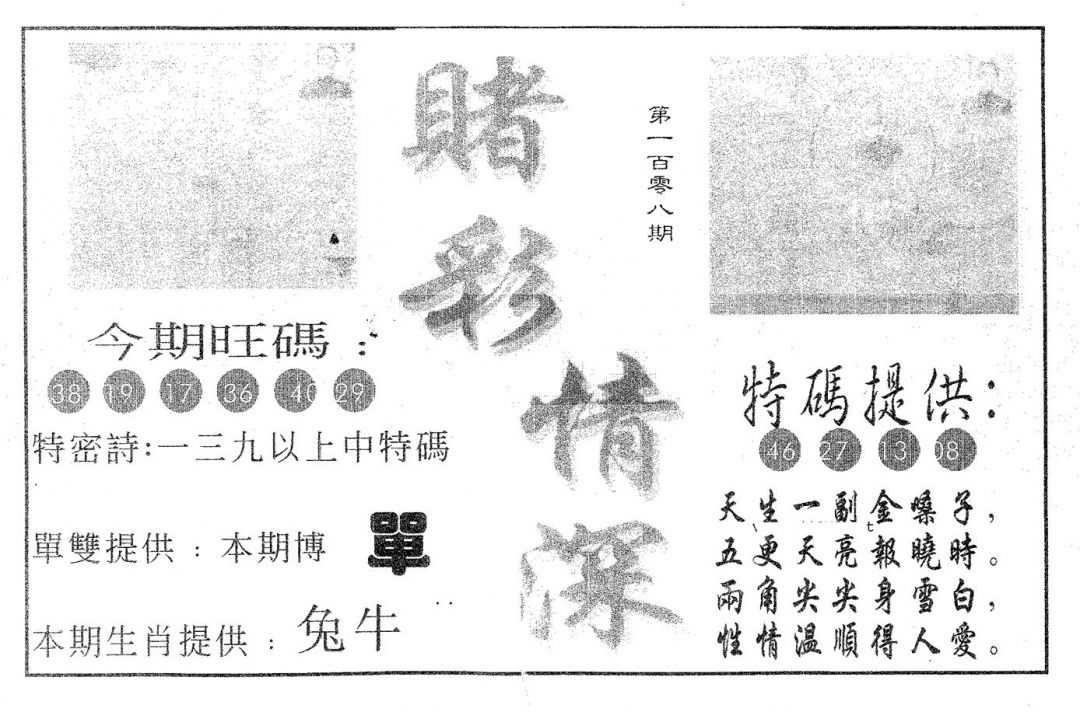 賭彩情深
第一百零八期
今期旺碼：
38 19 17 36 40 29
特密詩:一三九以上中特碼
單雙提供：本期博 單
本期生肖提供：兔牛
特碼提供：
46 27 13 08
天生一副金嗓子，
五更天亮報曉時。
兩角尖尖身雪白，
性情溫順得人愛。